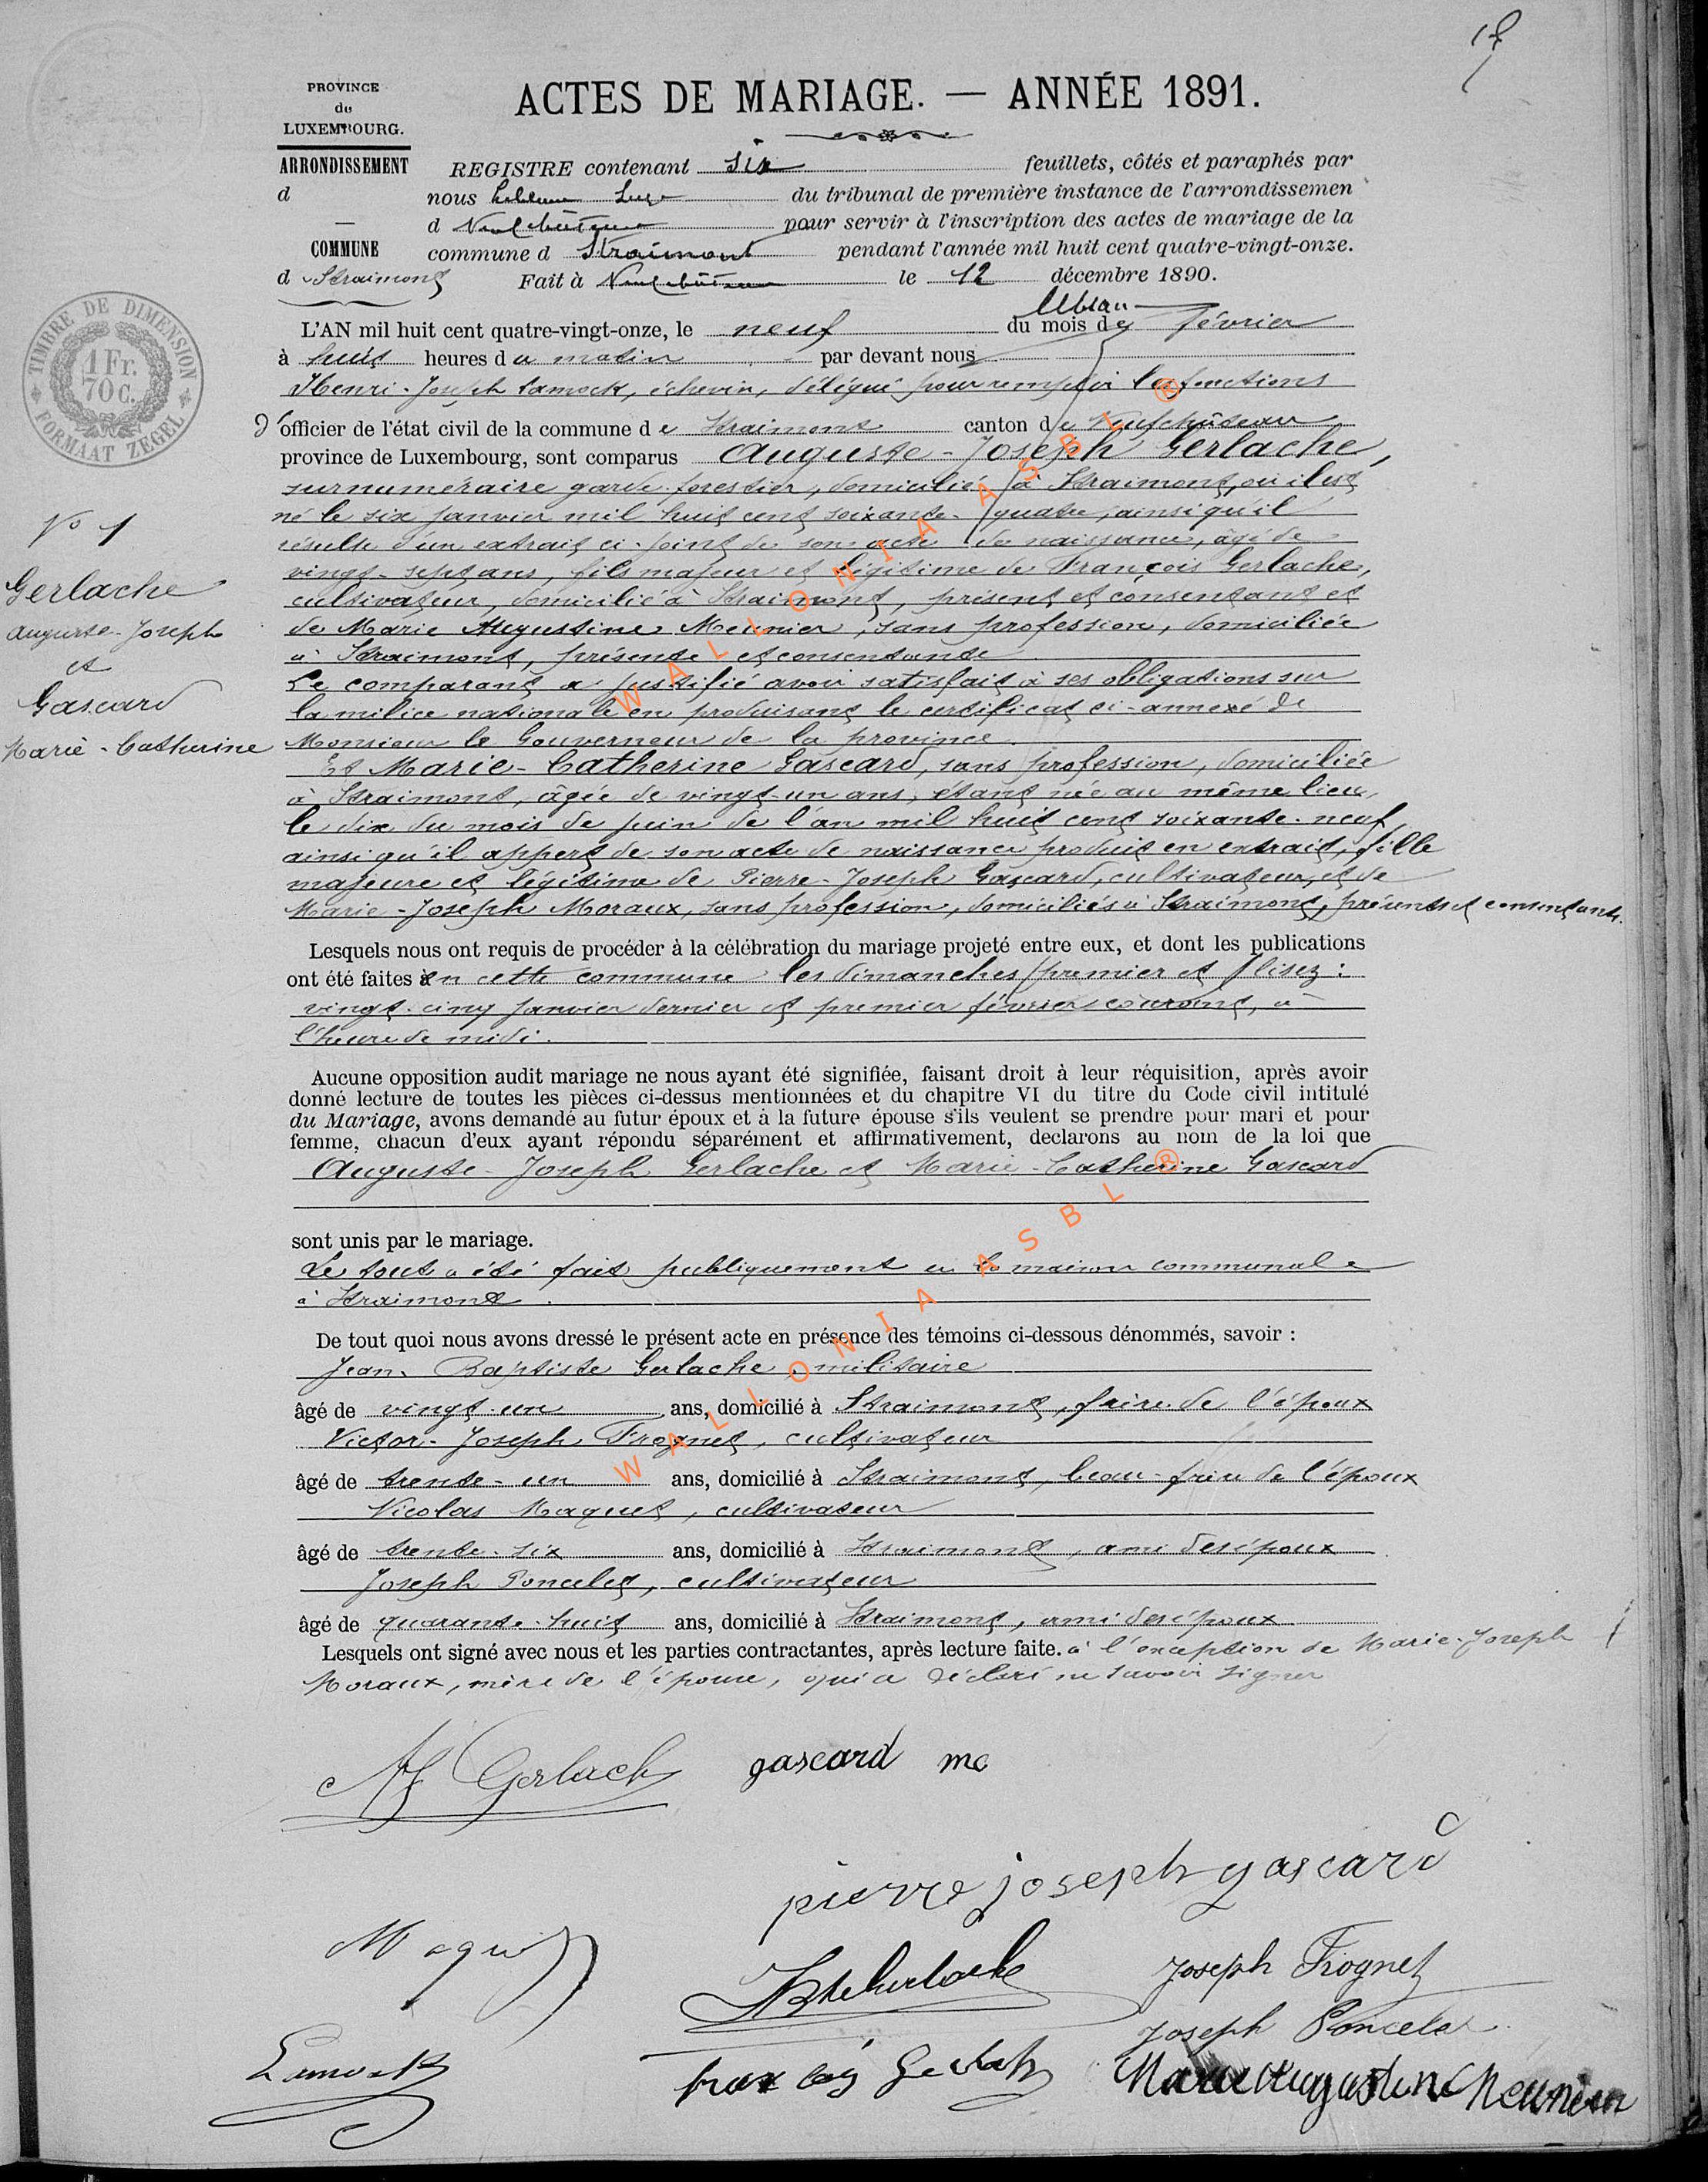 PROVINCE
de
LUXEMBOURG.
ARRONDISSEMENT
d
—
COMMUNE
d Straimont
ACTES DE MARIAGE. — ANNÉE 1891.
REGISTRE contenant six feuillets, côtés et paraphés par
nous Juge du tribunal de première instance de l'arrondissemen
d Neufchâteau pour servir à l'inscription des actes de mariage de la
commune d Straimont pendant l'année mil huit cent quatre-vingt-onze.
Fait à Neufchâteau le 12 décembre 1890.
TIMBRE DE DIMENSION
1 Fr.
70 c.
FORMAAT ZEGEL
L'AN mil huit cent quatre-vingt-onze, le neuf du mois de février
à huit heures du matin par devant nous
Henri-Joseph Lamock, échevin, délégué pour remplir les fonctions
d'officier de l'état civil de la commune de Straimont canton de Neufchâteau
province de Luxembourg, sont comparus Auguste-Joseph Gerlache,
surnuméraire garde-forestier, domicilié à Straimont, où il est
né le six janvier mil huit cent soixante-quatre, ainsi qu'il
résulte d'un extrait ci-joint de son acte de naissance, âgé de
vingt-sept ans, fils majeur et légitime de François Gerlache,
cultivateur, domicilié à Straimont, présent et consentant et
de Marie Augustine Meunier, sans profession, domiciliée
à Straimont, présente et consentante
Le comparant a justifié avoir satisfait à ses obligations sur
la milice nationale en produisant le certificat ci-annexé de
Monsieur le Gouverneur de la province.
Et Marie-Catherine Gascard, sans profession, domiciliée
à Straimont, âgée de vingt-un ans, étant née au même lieu,
le dix du mois de juin de l'an mil huit cent soixante-neuf,
ainsi qu'il appert de son acte de naissance produit en extrait, fille
majeure et légitime de Pierre-Joseph Gascard, cultivateur, et de
Marie-Joseph Moraux, sans profession, domiciliés à Straimont, présents et consentants.
No 1
Gerlache
Auguste-Joseph
et
Gascard
Marie-Catherine
Lesquels nous ont requis de procéder à la célébration du mariage projeté entre eux, et dont les publications
ont été faites en cette commune les dimanches premier et lisez :
vingt-cinq janvier dernier et premier février courant, à
l'heure de midi.
Aucune opposition audit mariage ne nous ayant été signifiée, faisant droit à leur réquisition, après avoir
donné lecture de toutes les pièces ci-dessus mentionnées et du chapitre VI du titre du Code civil intitulé
du Mariage, avons demandé au futur époux et à la future épouse s'ils veulent se prendre pour mari et pour
femme, chacun d'eux ayant répondu séparément et affirmativement, declarons au nom de la loi que
Auguste-Joseph Gerlache et Marie-Catherine Gascard
sont unis par le mariage.
Le tout a été fait publiquement en la maison communale
à Straimont.
De tout quoi nous avons dressé le présent acte en présence des témoins ci-dessous dénommés, savoir :
Jean-Baptiste Gerlache, militaire
âgé de vingt-un ans, domicilié à Straimont, frère de l'époux
Victor-Joseph Frognet, cultivateur
âgé de trente-un ans, domicilié à Straimont, beau-frère de l'époux
Nicolas Maquet, cultivateur
âgé de trente-six ans, domicilié à Straimont, ami des époux
Joseph Poncelet, cultivateur
âgé de quarante-huit ans, domicilié à Straimont, ami des époux
Lesquels ont signé avec nous et les parties contractantes, après lecture faite. à l'exception de Marie-Joseph
Moraux, mère de l'épouse, qui a déclaré ne savoir signer
AJ Gerlache gascard mc
pierre joseph gascard
Maquet
JBteGerlache Joseph Frognet
Joseph Poncelet
Lamock françois Gerlache Marie Augustine Meunier
WALLONIA ASBL ®
WALLONIA ASBL ®